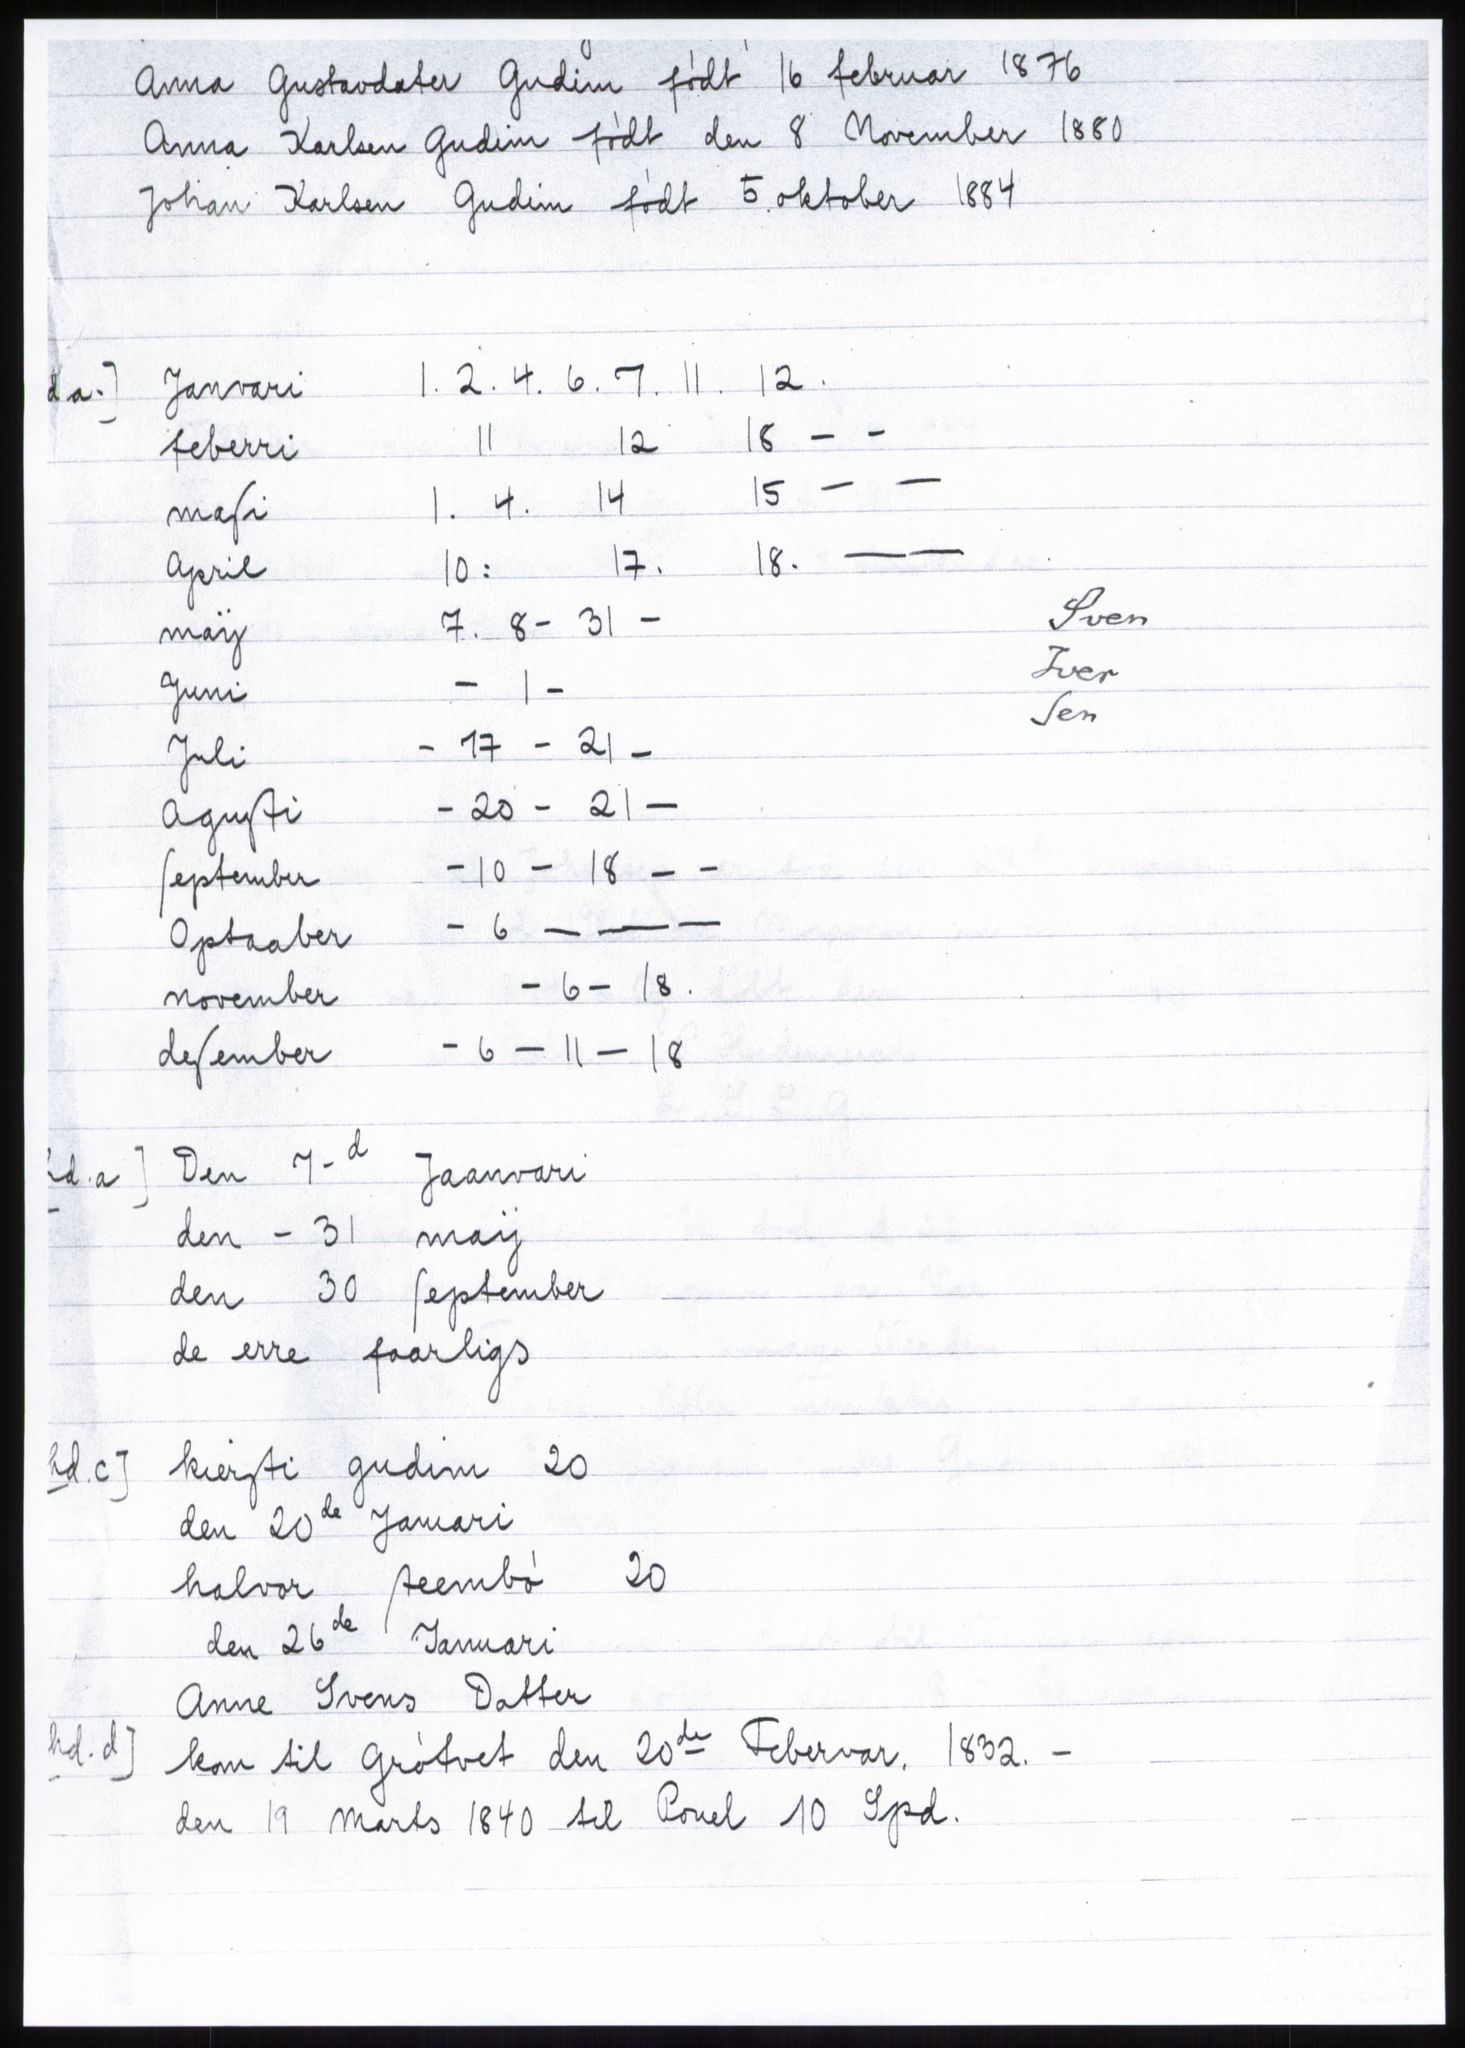 Anna Gustavdater Gudim født 16 februar 1876
Anna Karlsen Gudim født den 8 November 1880
Johan Karlsen Gudim født 5. oktober 1884
d.a.] Janvari 1. 2. 4. 6. 7. 11. 12.
feberri 11 12 18 – –
maſi 1. 4. 14 15 – –
April 10: 17. 18. — —
maÿ 7. 8 – 31 –
Juni – 1 –
Juli – 17 – 21 –
Aguſti – 20 – 21 –
ſeptember – 10 – 18 – –
Optaaber – 6 — — —
november – 6 – 18.
deſember – 6 – 11 – 18
Sven
Iver
Sen
hd.a] Den 7-d Jaanvari
den – 31 maÿ
den 30 ſeptember
de erre faarligs
hd.c] kierſti gudim 20
den 20de Januari
halvor ſteembø 20
den 26de Januari
Anne Svens Datter
hd.d] kom til Grøtvet den 20de Febervar. 1832. –
den 19 Marts 1840 til Pouel 10 Spd.